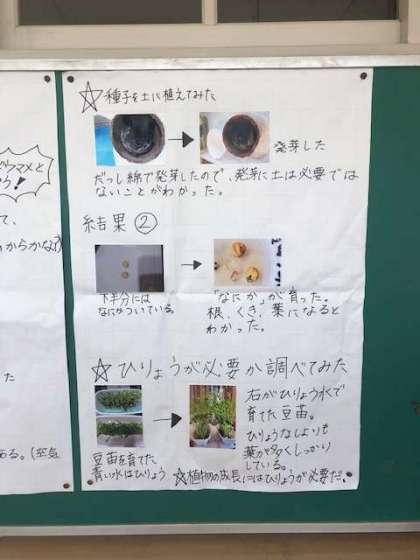 ウマメと
う!
て、
のからかな?
た
ある。(空気
☆種子を土に植えてみた
→
発芽した
だっし綿で発芽したので、発芽に土は必要では
ないことがわかった。
結果②
→
下半分には
なにかついている。
「なにか」が育った。
根、くき、葉になると
わかった。
☆ひりょうが必要か調べてみた
→
右がひりょう水で
育てた豆苗。
ひりょうなしよりも
葉が多くしっかり
している。
豆苗を育てた
青い水はひりょう
☆植物の成長にはひりょうが必要だ。